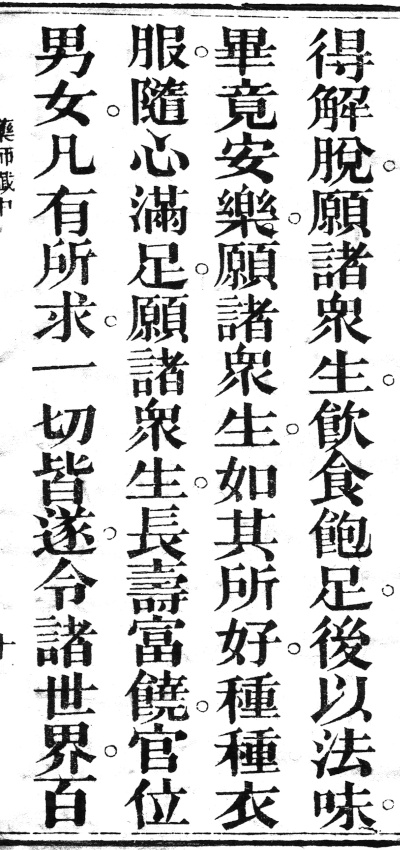 得解脫。願諸衆生。飲食飽足。後以法味。
畢竟安樂。願諸衆生。如其所好。種種衣
服。隨心滿足。願諸衆生。長壽富饒。官位
男女。凡有所求。一切皆遂。令諸世界。百
藥師懺中
十